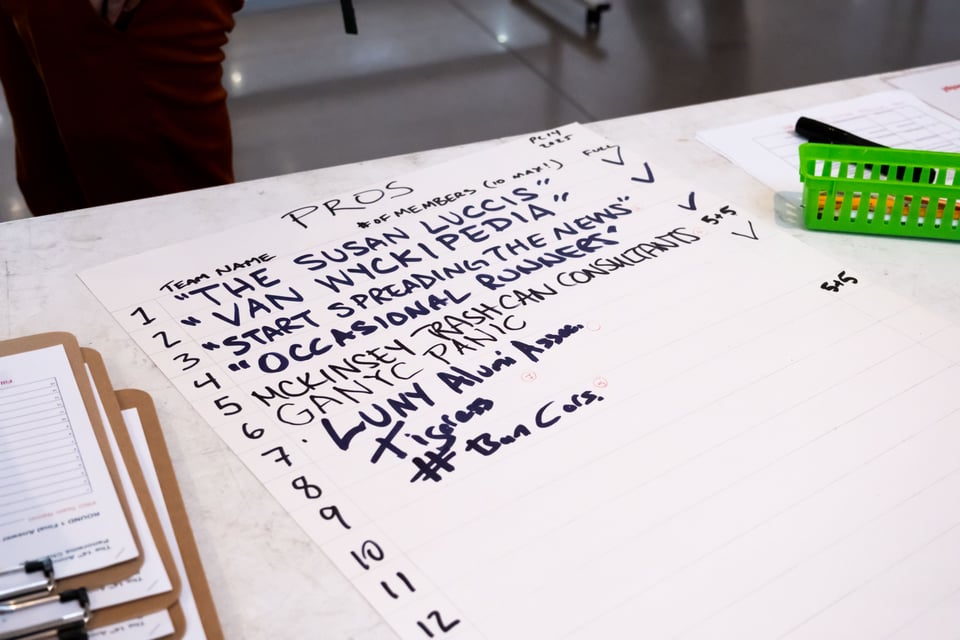 PROS
PL14
2025
TEAM NAME # OF MEMBERS (10 MAX!) FULL?
1 "THE SUSAN LUCCIS" ✓
2 "VAN WYCKIPEDIA" ✓
3 "START SPREADING THE NEWS" ✓
4 "OCCASIONAL RUNNERS" 5+5
5 MCKINSEY TRASHCAN CONSULTANTS ✓
6 GANYC PANIC
7 LUNY Alumi Assoc. 5+5
8 Tigress 7
9 # Ban Cars.
10
11
12
ROUND 1 Final Answer